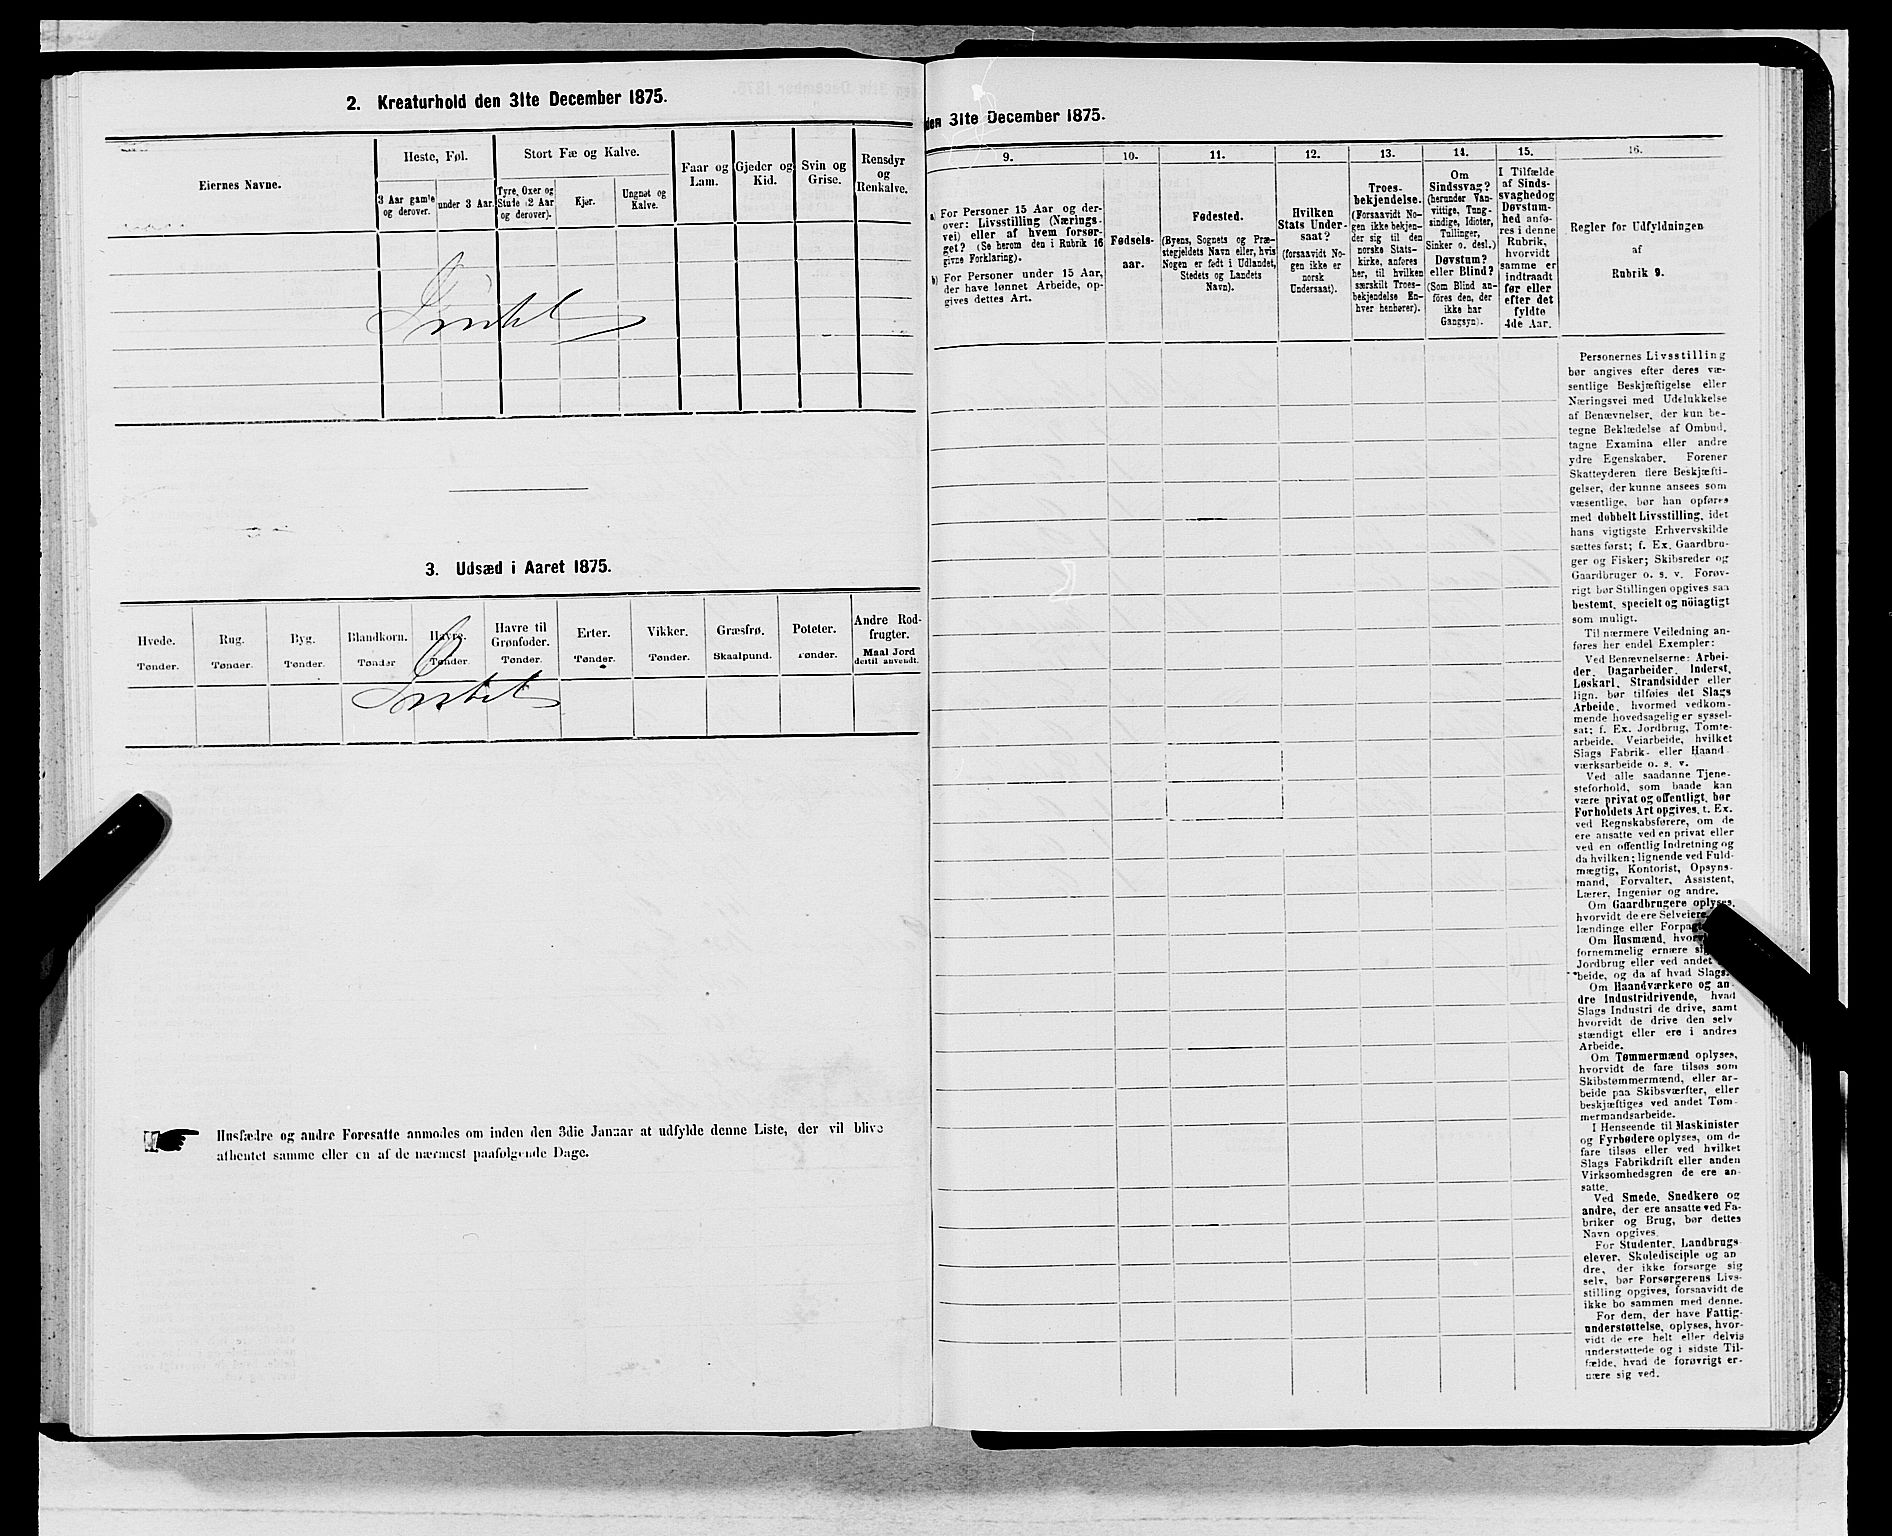 2. Kreaturhold den 31te December 1875.
Eiernes Navne.
Heste, Føl.
3 Aar gamle og derover.
under 3 Aar.
Stort Fæ og Kalve.
Tyre, Oxer og Stude (2 Aar og derover).
Kjør.
Ungnøt og Kalve.
Faar og Lam.
Gjeder og Kid.
Svin og Grise.
Rensdyr og Renkalve.
Intet
3. Udsæd i Aaret 1875.
Hvede. Tønder.
Rug. Tønder.
Byg. Tønder.
Blandkorn. Tønder
Havre. Tønder.
Havre til Grønfoder. Tønder.
Erter. Tønder.
Vikker. Tønder.
Græsfrø. Skaalpund.
Poteter. Tønder.
Andre Rodfrugter. Maal Jord dertil anvendt.
Intet
Husfædre og andre Foresatte anmodes om inden den 3die Januar at udfylde denne Liste, der vil blive
afhentet samme eller en af de nærmest paafølgende Dage.
den 31te December 1875.
9.
a) For Personer 15 Aar og der-
over: Livsstilling (Nærings-
vei) eller af hvem forsør-
get? (Se herom den i Rubrik 16
givne Forklaring).
b) For Personer under 15 Aar,
der have lønnet Arbeide, op-
gives dettes Art.
10.
Fødsels-
aar.
11.
Fødested.
(Byens, Sognets og Præ-
stegjeldets Navn eller, hvis
Nogen er født i Udlandet,
Stedets og Landets
Navn).
12.
Hvilken
Stats Under-
saat?
(forsaavidt No-
gen ikke er
norsk
Undersaat).
13.
Troes-
bekjendelse.
(Forsaavidt No-
gen ikke bekjen-
der sig til den
norske Stats-
kirke, anføres
her, til hvilken
særskilt Troes-
bekjendelse En-
hver henhører).
14.
Om
Sindssvag?
(herunder Van-
vittige, Tung-
sindige, Idioter,
Tullinger,
Sinker o. desl.)
Døvstum?
eller Blind?
(Som Blind an-
føres den, der
ikke har
Gangsyn).
15.
I Tilfælde
af Sinds-
svaghed og
Døvstum-
hed anfø-
res i denne
Rubrik,
hvorvidt
samme er
indtraadt
før eller
efter det
fyldte
4de Aar.
16.
Regler for Udfyldningen
af
Rubrik 9.
Personernes Livsstilling
bør angives efter deres væ-
sentlige Beskjæftigelse eller
Næringsvei med Udelukkelse
af Benævnelser, der kun be-
tegne Beklædelse af Ombud,
tagne Examina eller andre
ydre Egenskaber. Forener
Skatteyderen flere Beskjæfti-
gelser, der kunne ansees som
væsentlige, bør han opføres
med dobbelt Livsstilling, idet
hans vigtigste Erhvervskilde
sættes først; f. Ex. Gaardbru-
ger og Fisker; Skibsreder og
Gaardbruger o. s. v. Forøv-
rigt bør Stillingen opgives saa
bestemt, specielt og nøiagtigt
som muligt.
Til nærmere Veiledning an-
føres her endel Exempler:
Ved Benævnelserne: Arbei-
der, Dagarbeider, Inderst,
Løskarl, Strandsidder eller
lign. bør tilføies det Slags
Arbeide, hvormed vedkom-
mende hovedsagelig er syssel-
sat; f. Ex. Jordbrug, Tomte-
arbeide, Veiarbeide, hvilket
Slags Fabrik- eller Haand-
værksarbeide o. s. v.
Ved alle saadanne Tjene-
steforhold, som baade kan
være privat og offentligt, bør
Forholdets Art opgives, t. Ex.
ved Regnskabsførere, om de
ere ansatte ved en privat eller
ved en offentlig Indretning og
da hvilken; lignende ved Fuld-
mægtig, Kontorist, Opsyns-
mand, Forvalter, Assistent,
Lærer, Ingeniør og andre.
Om Gaardbrugere oplyses,
hvorvidt de ere Selveiere,
lændinge eller
Om Husmænd,
fornemmelig ernære
Jordbrug eller ved andet
beide, og da af hvad Slags.
Om Haandværkere og an-
dre Industridrivende, hvad
Slags Industri de drive, samt
hvorvidt de drive den selv
stændigt eller ere i andres
Arbeide.
Om Tømmermænd oplyses,
hvorvidt de fare tilsøs som
Skibstømmermænd, eller ar-
beide paa Skibsværfter, eller
beskjæftiges ved andet Tøm-
mermandsarbeide.
I Henseende til Maskinister
og Fyrbødere oplyses, om de
fare tilsøs eller ved hvilket
Slags Fabrikdrift eller anden
Virksomhedsgren de ere an-
satte.
Ved Smede, Snedkere og
andre, der ere ansatte ved Fa-
briker og Brug, bør dettes
Navn opgives.
For Studenter, Landbrugs-
elever, Skoledisciple og an
dre, der ikke forsørge sig
selv, bør Forsørgerens Livs-
stilling opgives, forsaavidt de
ikke bo sammen med denne.
For dem, der have Fattig-
understøttelse, oplyses, hvor-
vidt de ere helt eller delvis
understøttede og i sidste Til-
fælde, hvad de forøvrigt er-
nære sig ved.